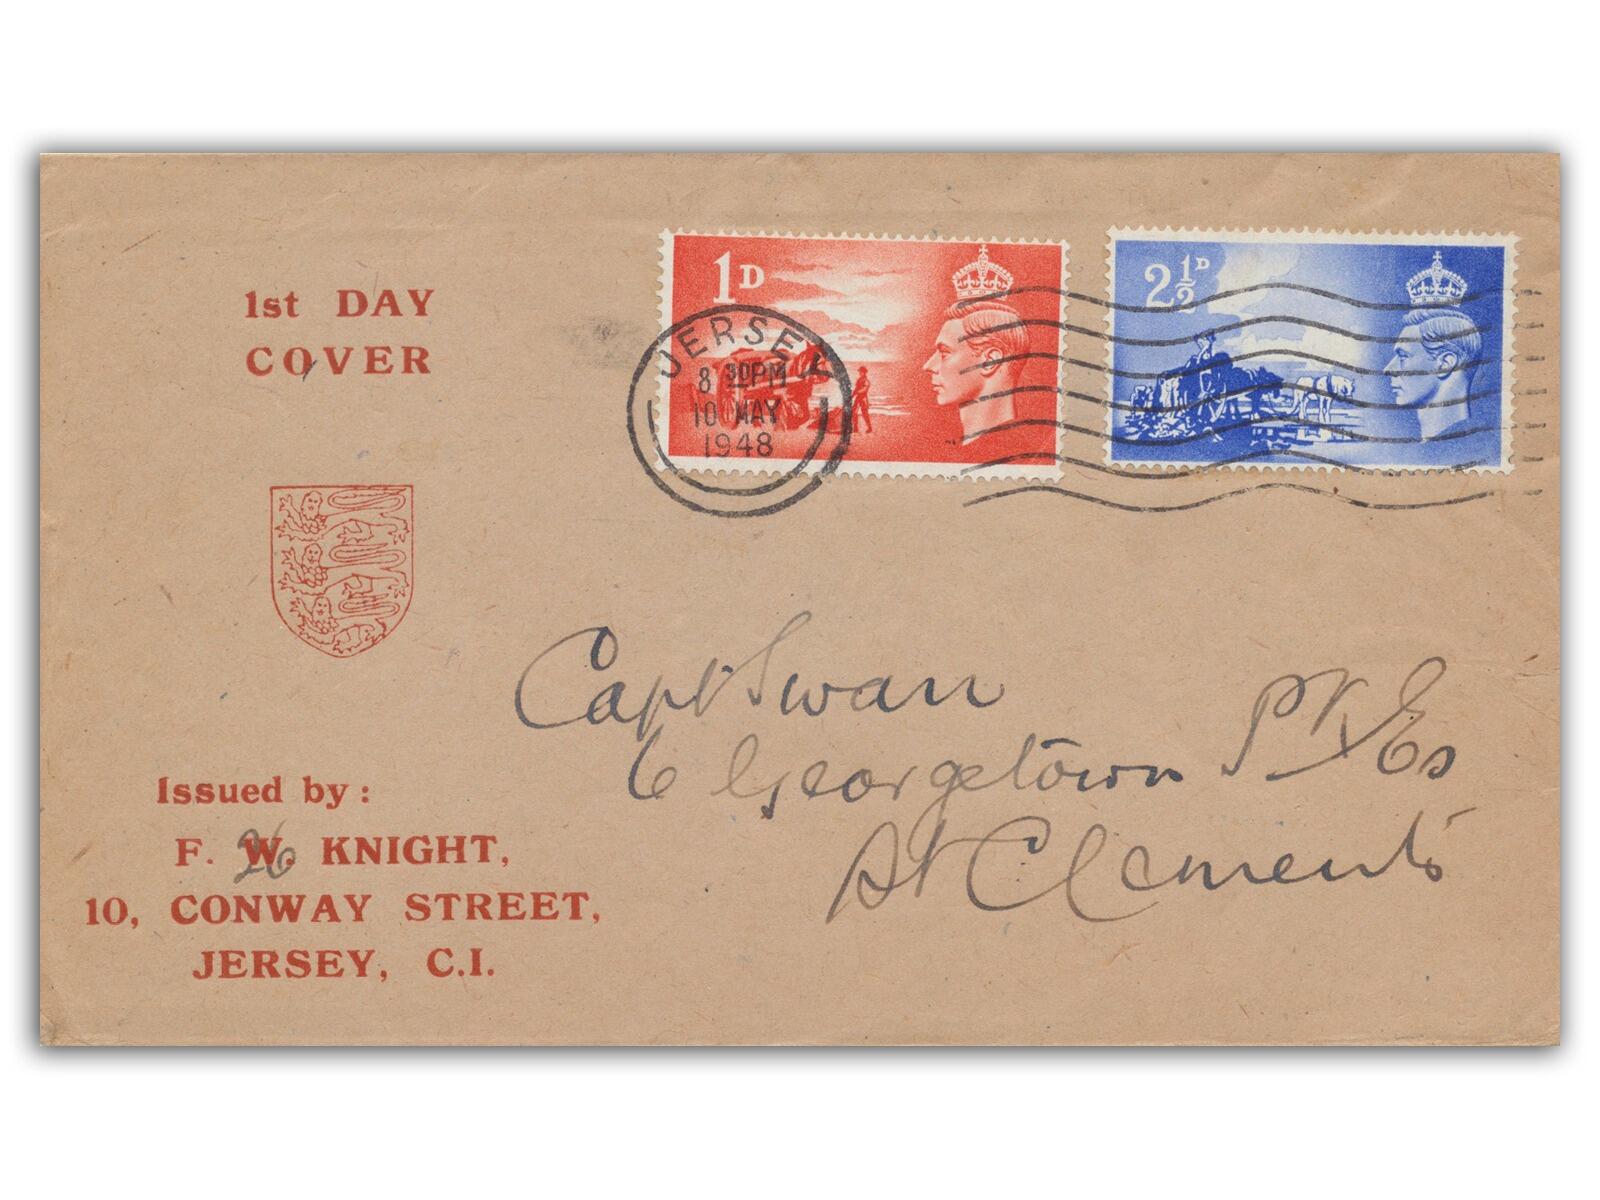 1st DAY
COVER
1D
2½D
JERSEY
8 30PM
10 MAY
1948
Capt Swan
6 Georgetown Pk Es
St Clements
Issued by :
F. W. KNIGHT,
26
10, CONWAY STREET,
JERSEY, C.I.